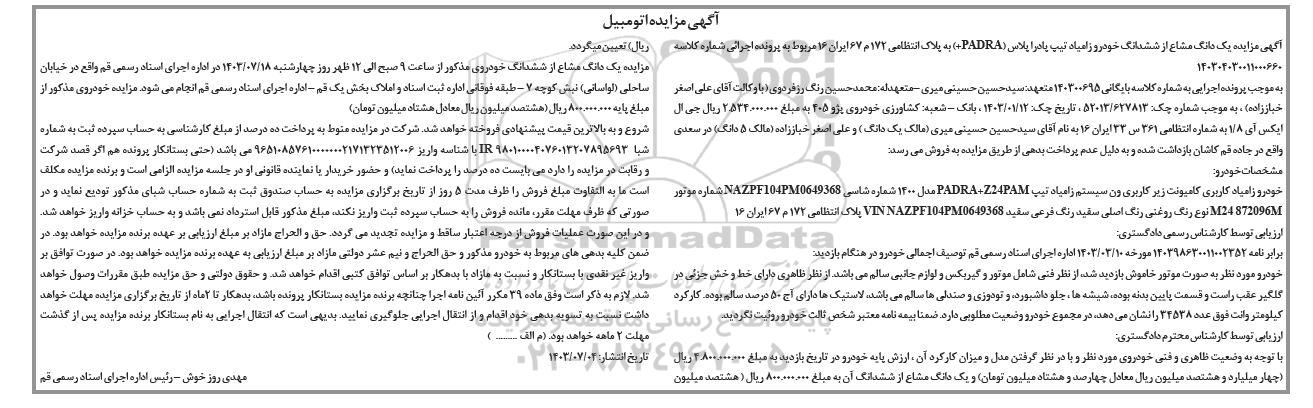 آگهی مزایده اتومبیل
آگهی مزایده یک دانگ مشاع از ششدانگ خودرو زامیاد تیپ پادرا پلاس (PADRA+) به پلاک انتظامی ۱۷۲ م ۶۷ ایران ۱۶ مربوط به پرونده اجرائی شماره کلاسه
۱۴۰۳۰۴۰۳۰۰۱۱۰۰۰۶۶۰
به موجب پرونده اجرایی به شماره کلاسه بایگانی ۱۴۰۳۰۰۶۹۵ متعهد: سیدحسین حسینی میری – متعهدله: محمدحسین رنگ رز فردوی (با وکالت آقای علی اصغر
خباززاده) ، به موجب شماره چک: ۵۲۰۱۳/۶۲۷۸۱۳ ، تاریخ چک: ۱۴۰۳/۰۱/۱۲ ، بانک – شعبه: کشاورزی خودروی پژو ۴۰۵ به مبلغ ۲.۵۳۴.۰۰۰.۰۰۰ ریال جی ال
ایکس آی ۱/۸ به شماره انتظامی ۳۶۱ س ۳۳ ایران ۱۶ به نام آقای سیدحسین حسینی میری (مالک یک دانگ ) و علی اصغر خباززاده (مالک ۵ دانگ) در سعدی
واقع در جاده قم کاشان بازداشت شده و به دلیل عدم پرداخت بدهی از طریق مزایده به فروش می رسد:
مشخصات خودرو:
خودرو زامیاد کاربری کامیونت زیر کاربری ون سیستم زامیاد تیپ PADRA+Z24PAM مدل ۱۴۰۰ شماره شاسی NAZPF104PM0649368 شماره موتور
M24 872096M نوع رنگ روغنی رنگ اصلی سفید رنگ فرعی سفید VIN NAZPF104PM0649368 پلاک انتظامی ۱۷۲ م ۶۷ ایران ۱۶
ارزیابی توسط کارشناس رسمی دادگستری:
برابر نامه ۱۴۰۳۹۸۶۳۰۰۱۱۰۰۲۳۵۲ مورخه ۱۴۰۳/۰۳/۱۰ اداره اجرای اسناد رسمی قم توصیف اجمالی خودرو در هنگام بازدید:
خودرو مورد نظر به صورت موتور خاموش بازدید شد، از نظر فنی شامل موتور و گیربکس و لوازم جانبی سالم می باشد. از نظر ظاهری دارای خط و خش جزئی در
گلگیر عقب راست و قسمت پایین بدنه بوده، شیشه ها ، جلو داشبورد، و تودوزی و صندلی ها سالم می باشد، لاستیک ها دارای آج ۵۰ درصد سالم بوده. کارکرد
کیلومتر وانت فوق عدد ۳۴۵۳۸ را نشان می دهد، در مجموع خودرو وضعیت مطلوبی دارد. ضمنا بیمه نامه معتبر شخص ثالث خودرو روئیت نگردید.
ارزیابی توسط کارشناس محترم دادگستری:
با توجه به وضعیت ظاهری و فنی خودروی مورد نظر و با در نظر گرفتن مدل و میزان کارکرد آن ، ارزش پایه خودرو در تاریخ بازدید به مبلغ ۴.۸۰۰.۰۰۰.۰۰۰ ریال
(چهار میلیارد و هشتصد میلیون ریال معادل چهارصد و هشتاد میلیون تومان) و یک دانگ مشاع از ششدانگ آن به مبلغ ۸۰۰.۰۰۰.۰۰۰ ریال ( هشتصد میلیون
ریال) تعیین میگردد.
مزایده یک دانگ مشاع از ششدانگ خودروی مذکور از ساعت ۹ صبح الی ۱۲ ظهر روز چهارشنبه ۱۴۰۳/۰۷/۱۸ در اداره اجرای اسناد رسمی قم واقع در خیابان
ساحلی (لواسانی) نبش کوچه ۷ – طبقه فوقانی اداره ثبت اسناد و املاک بخش یک قم – اداره اجرای اسناد رسمی قم انجام می شود. مزایده خودروی مذکور از
مبلغ پایه ۸۰۰.۰۰۰.۰۰۰ ریال (هشتصد میلیون ریال معادل هشتاد میلیون تومان)
شروع و به بالاترین قیمت پیشنهادی فروخته خواهد شد. شرکت در مزایده منوط به پرداخت ده درصد از مبلغ کارشناسی به حساب سپرده ثبت به شماره
شبا IR ۹۸۰۱۰۰۰۰۴۰۷۶۰۱۳۲۰۷۸۹۵۶۹۳ با شناسه واریز ۹۶۵۱۰۸۵۷۶۱۰۰۰۰۰۰۰۲۱۷۱۳۲۳۵۱۲۰۰۶ می باشد (حتی بستانکار پرونده هم اگر قصد شرکت
و رقابت در مزایده را دارد می بایست ده درصد را پرداخت نماید) و حضور خریدار یا نماینده قانونی او در جلسه مزایده الزامی است و برنده مزایده مکلف
است ما به التفاوت مبلغ فروش را ظرف مدت ۵ روز از تاریخ برگزاری مزایده به حساب صندوق ثبت به شماره حساب شبای مذکور تودیع نماید و در
صورتی که ظرف مهلت مقرر، مانده فروش را به حساب سپرده ثبت واریز نکند، مبلغ مذکور قابل استرداد نمی باشد و به حساب خزانه واریز خواهد شد.
و در این صورت عملیات فروش از درجه اعتبار ساقط و مزایده تجدید می گردد. حق و الحراج مازاد بر مبلغ ارزیابی بر عهده برنده مزایده خواهد بود. در
ضمن کلیه بدهی های مربوط به خودرو مذکور و حق الحراج و نیم عشر دولتی مازاد بر مبلغ ارزیابی به عهده برنده مزایده خواهد بود. در صورت توافق بر
واریز غیر نقدی با بستانکار و نسبت به مازاد با بدهکار بر اساس توافق کتبی اقدام خواهد شد. و حقوق دولتی و حق مزایده طبق مقررات وصول خواهد
شد. لازم به ذکر است وفق ماده ۳۹ مکرر آئین نامه اجرا چنانچه برنده مزایده بستانکار پرونده باشد، بدهکار تا ۲ماه از تاریخ برگزاری مزایده مهلت خواهد
داشت نسبت به تسویه بدهی خود اقدام و از انتقال اجرایی جلوگیری نمایید. بدیهی است که انتقال اجرایی به نام بستانکار برنده مزایده پس از گذشت
مهلت ۲ ماهه خواهد بود. (م الف ......... )
تاریخ انتشار: ۱۴۰۳/۰۷/۰۴
مهدی روز خوش – رئیس اداره اجرای اسناد رسمی قم
ParsNamadData
پایگاه اطلاع رسانی مناقصه و مزایده
۰۲۱-۸۸۳۴۹۶۷۰-۵